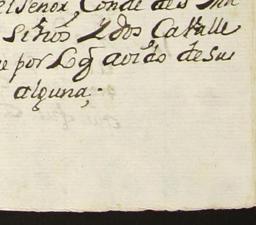 el señor, Conde de S
Señor 2 dos Caballe
e por Lg avido de su
alguna,